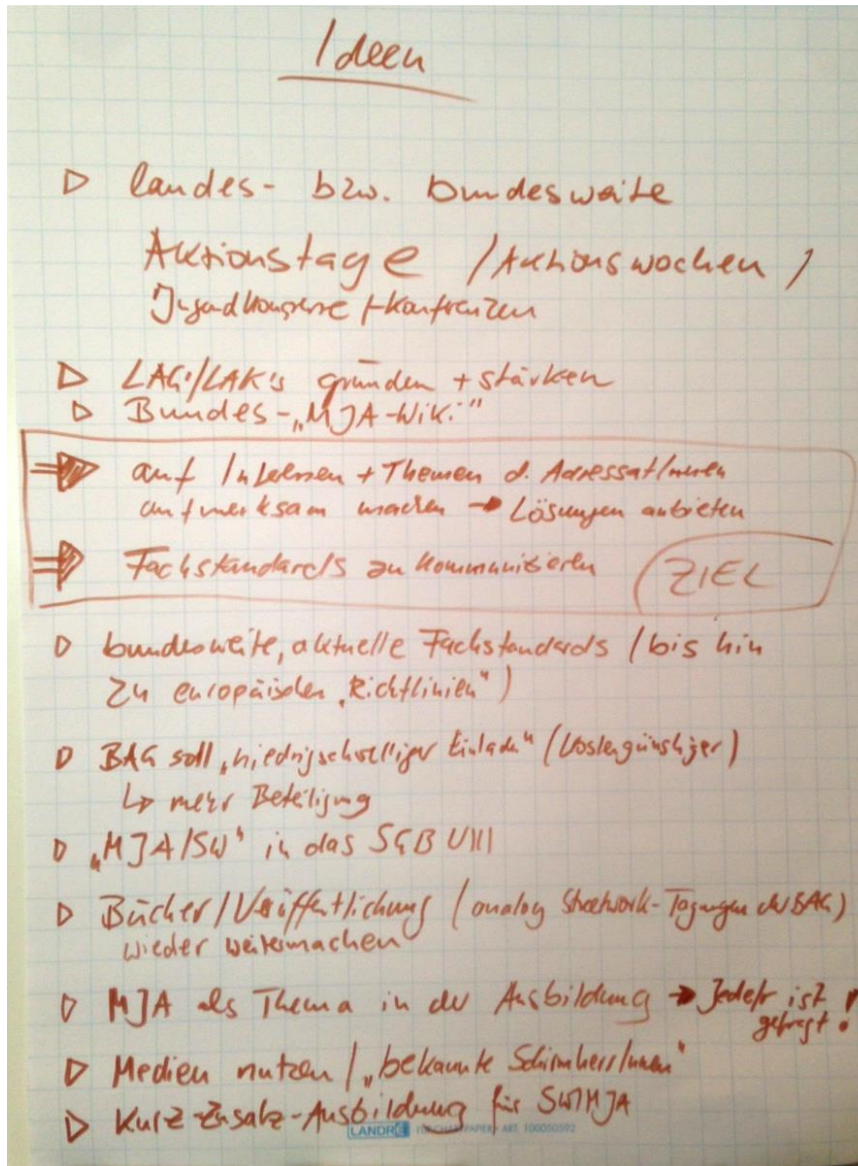 Ideen
▷ landes- bzw. bundesweite
Aktionstage / Aktionswochen /
Jugendkongresse /-konferenzen
▷ LAG's/LAK's gründen + stärken
▷ Bundes-„MJA-Wiki"
⇒ auf Interessen + Themen d. Adressat/innen
aufmerksam machen → Lösungen anbieten
⇒ Fachstandards zu kommunizieren ZIEL
▷ bundesweite, aktuelle Fachstandards (bis hin
zu europäischen „Richtlinien")
▷ BAG soll „niedrigschwelliger einladen" (kostengünstiger)
↳ mehr Beteiligung
▷ „MJA/SW" in das SGB VIII
▷ Bücher/Veröffentlichung (analog Streetwork-Tagungen der BAG)
wieder weitermachen
▷ MJA als Thema in der Ausbildung → Jede/r ist
gefragt!
▷ Medien nutzen / „bekannte Schirmherr/innen"
▷ Kurz-Zusatz-Ausbildung für SW/MJA
LANDRÉ ART. 100050592